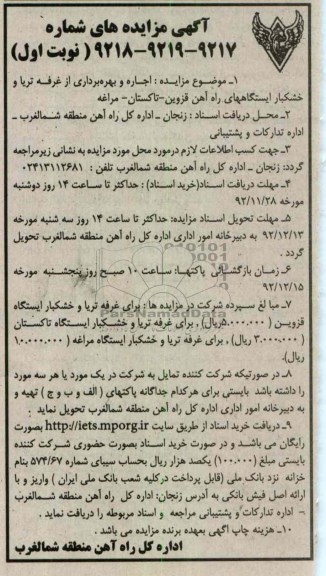 آگهی مزایده های شماره
۹۲۱۷-۹۲۱۹-۹۲۱۸ ( نوبت اول)
۱- موضوع مزایده : اجاره و بهره‌برداری از غرفه تریا و
خشکبار ایستگاههای راه آهن قزوین-تاکستان- مراغه
۲- محل دریافت اسناد : زنجان - اداره کل راه آهن منطقه شمالغرب -
اداره تدارکات و پشتیبانی
۳- جهت کسب اطلاعات لازم درمورد محل مورد مزایده به نشانی زیرمراجعه
گردد: زنجان - اداره کل راه آهن منطقه شمالغرب تلفن : ۰۲۴۱۳۱۱۲۶۸۱
۴- مهلت دریافت اسناد(خرید اسناد) : حداکثر تا ساعت ۱۴ روز دوشنبه
مورخه ۹۲/۱۱/۲۸
۵- مهلت تحویل اسناد مزایده: حداکثر تا ساعت ۱۴ روز سه شنبه مورخه
۹۲/۱۲/۱۳ به دبیرخانه امور اداری اداره کل راه آهن منطقه شمالغرب تحویل
گردد .
۶- زمان بازگشایی پاکتها: ساعت ۱۰ صبح روز پنجشنبه مورخه
۹۲/۱۲/۱۵
۷- مبا لغ سپرده شرکت در مزایده ها : برای غرفه تریا و خشکبار ایستگاه
قزوین (۵.۰۰۰.۰۰۰ریال) , برای غرفه تریا و خشکبار ایستگاه تاکستان
(۳.۰۰۰.۰۰۰ ریال) , برای غرفه تریا و خشکبار ایستگاه مراغه (۱۰.۰۰۰.۰۰۰
ریال).
۸- در صورتیکه شرکت کننده تمایل به شرکت در یک مورد یا هر سه مورد
را داشته باشد بایستی برای هرکدام جداگانه پاکتهای ( الف و ب و ج ) تهیه و
به دبیرخانه امور اداری اداره کل راه آهن منطقه شمالغرب تحویل نماید .
۹- دریافت خرید اسناد از طریق سایت http://iets.mporg.ir بصورت
رایگان می باشد و در صورت خرید اسناد بصورت حضوری شرکت کننده
بایستی مبلغ (۱۰۰.۰۰۰) یکصد هزار ریال بحساب سیبای شماره ۵۷۴/۶۷ بنام
خزانه نزد بانک ملی (قابل پرداخت درکلیه شعب بانک ملی ایران ) واریز و با
ارائه اصل فیش بانکی به آدرس زنجان: اداره کل راه آهن منطقه شمالغرب
- اداره تدارکات و پشتیبانی مراجعه و اسناد مربوطه را دریافت نماید .
۱۰- هزینه چاپ اگهی بعهده برنده مزایده می باشد .
اداره کل راه آهن منطقه شمالغرب